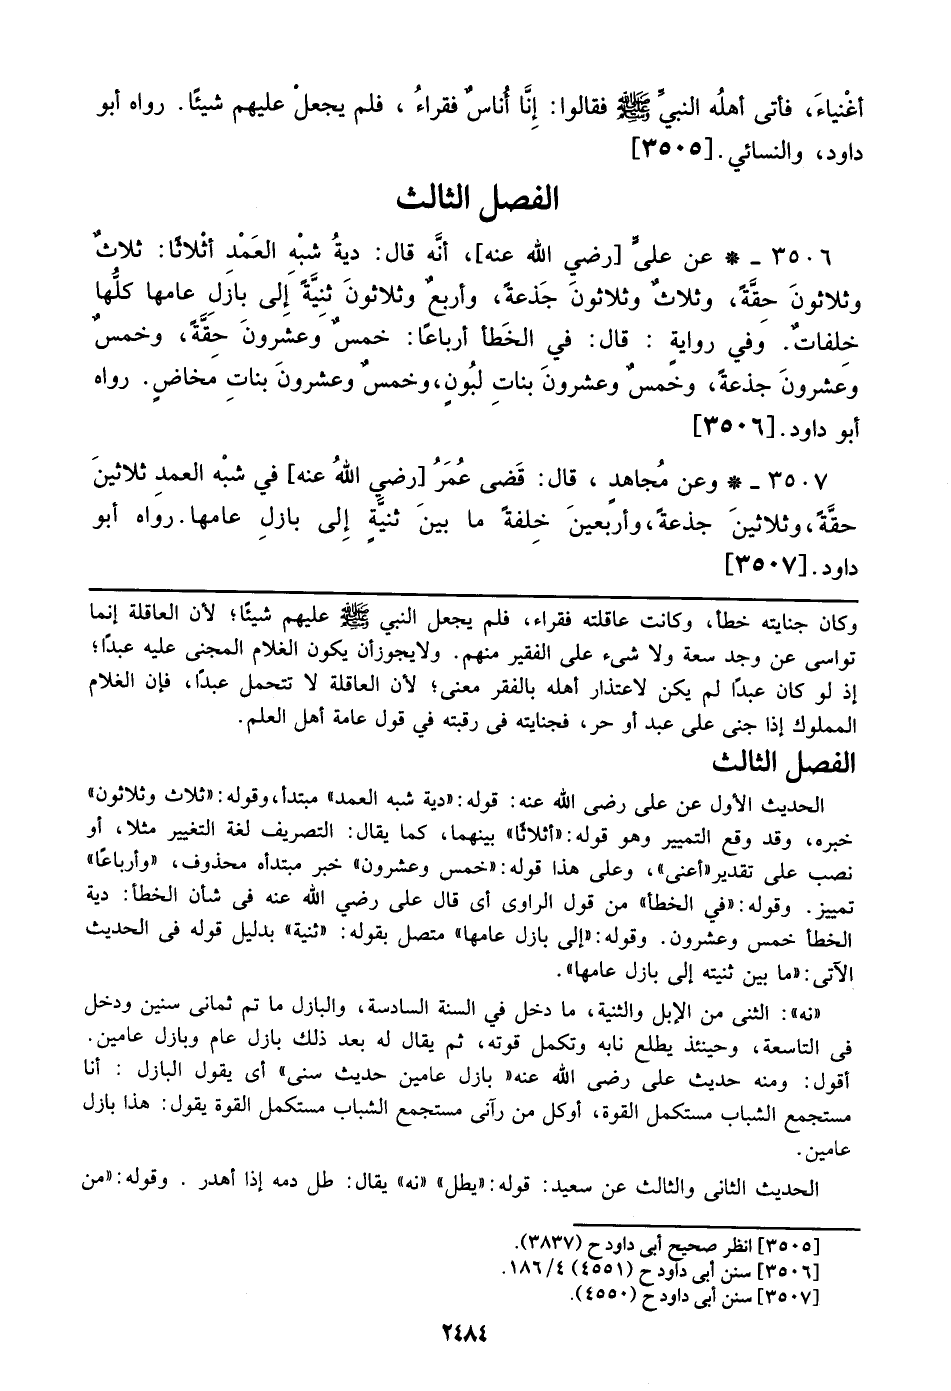 أغْنياءَ، فأتى أهلُه النبيَّ ﷺ فقالوا: إِنَّا أُناسٌ فقراءُ ، فلم يجعلْ عليهم شيئًا. رواه أبو
داود، والنسائي.[٣٥٠٥]
الفصل الثالث
٣٥٠٦ ـ * عن عليٍّ [رضي الله عنه]، أنَّه قال: ديةُ شبْهِ العَمْدِ أثْلاثًا: ثلاثٌ
وثلاثونَ حِقَّةً، وثلاثٌ وثلاثونَ جَذعةً، وأربعٌ وثلاثونَ ثنِيَّةً إِلى بازلِ عامها كلُّها
خلِفاتٌ. وفي روايةٍ : قال: في الخَطأ أرباعًا: خمسٌ وعشرونَ حِقَّةً، وخمسٌ
وعشرونَ جذعةً، وخمسٌ وعشرونَ بناتِ لبُونٍ،وخمسٌ وعشرونَ بناتِ مخاضٍ. رواه
أبو داود.[٣٥٠٦]
٣٥٠٧ ـ * وعن مُجاهدٍ ، قال: قَضى عُمَرُ [رضي اللهُ عنه] في شبْه العمدِ ثلاثينَ
حقَّةً،وثلاثينَ جذعةً،وأربعينَ خلِفةً ما بينَ ثنيَّةٍ إِلى بازلِ عامها.رواه أبو
داود.[٣٥٠٧]
وكان جنايته خطأ، وكانت عاقلته فقراء، فلم يجعل النبي ﷺ عليهم شيئًا؛ لأن العاقلة إنما
تواسى عن وجد سعة ولا شىء على الفقير منهم. ولايجوزأن يكون الغلام المجنى عليه عبدًا؛
إذ لو كان عبدًا لم يكن لاعتذار أهله بالفقر معنى؛ لأن العاقلة لا تتحمل عبدًا، فإن الغلام
المملوك إذا جنى على عبد أو حر، فجنايته فى رقبته في قول عامة أهل العلم.
الفصل الثالث
الحديث الأول عن على رضى الله عنه: قوله:«دية شبه العمد» مبتدأ،وقوله:«ثلاث وثلاثون»
خبره، وقد وقع التمييز وهو قوله:«أثلاثًا» بينهما، كما يقال: التصريف لغة التغيير مثلا، أو
نصب على تقدير«أعنى»، وعلى هذا قوله:«خمس وعشرون» خبر مبتدأه محذوف، «وأرباعًا»
تمييز. وقوله:«في الخطأ» من قول الراوى أى قال على رضي الله عنه فى شأن الخطأ: دية
الخطأ خمس وعشرون. وقوله:«إلى بازل عامها» متصل بقوله: «ثنية» بدليل قوله فى الحديث
الآتى:«ما بين ثنيته إلى بازل عامها».
«نه»: الثنى من الإبل والثنية، ما دخل في السنة السادسة، والبازل ما تم ثمانى سنين ودخل
فى التاسعة، وحينئذ يطلع نابه وتكمل قوته، ثم يقال له بعد ذلك بازل عام وبازل عامين.
أقول: ومنه حديث على رضى الله عنه« بازل عامين حديث سنى» أى يقول البازل : أنا
مستجمع الشباب مستكمل القوة، أوكل من رآنى مستجمع الشباب مستكمل القوة يقول: هذا بازل
عامين.
الحديث الثانى والثالث عن سعيد: قوله:«يطل» «نه» يقال: طل دمه إذا أهدر . وقوله:«من
[٣٥٠٥] انظر صحيح أبى داود ح (٣٨٣٧).
[٣٥٠٦] سنن أبى داود ح (٤٥٥١) ٤/ ١٨٦.
[٣٥٠٧] سنن أبى داود ح (٤٥٥٠).
٢٤٨٤